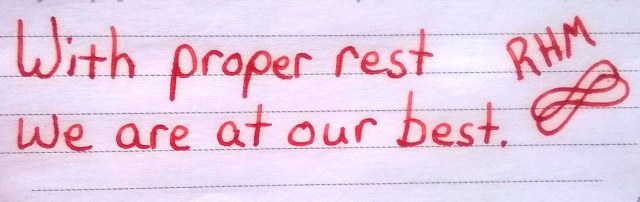 With proper rest
RHM
We are at our best.